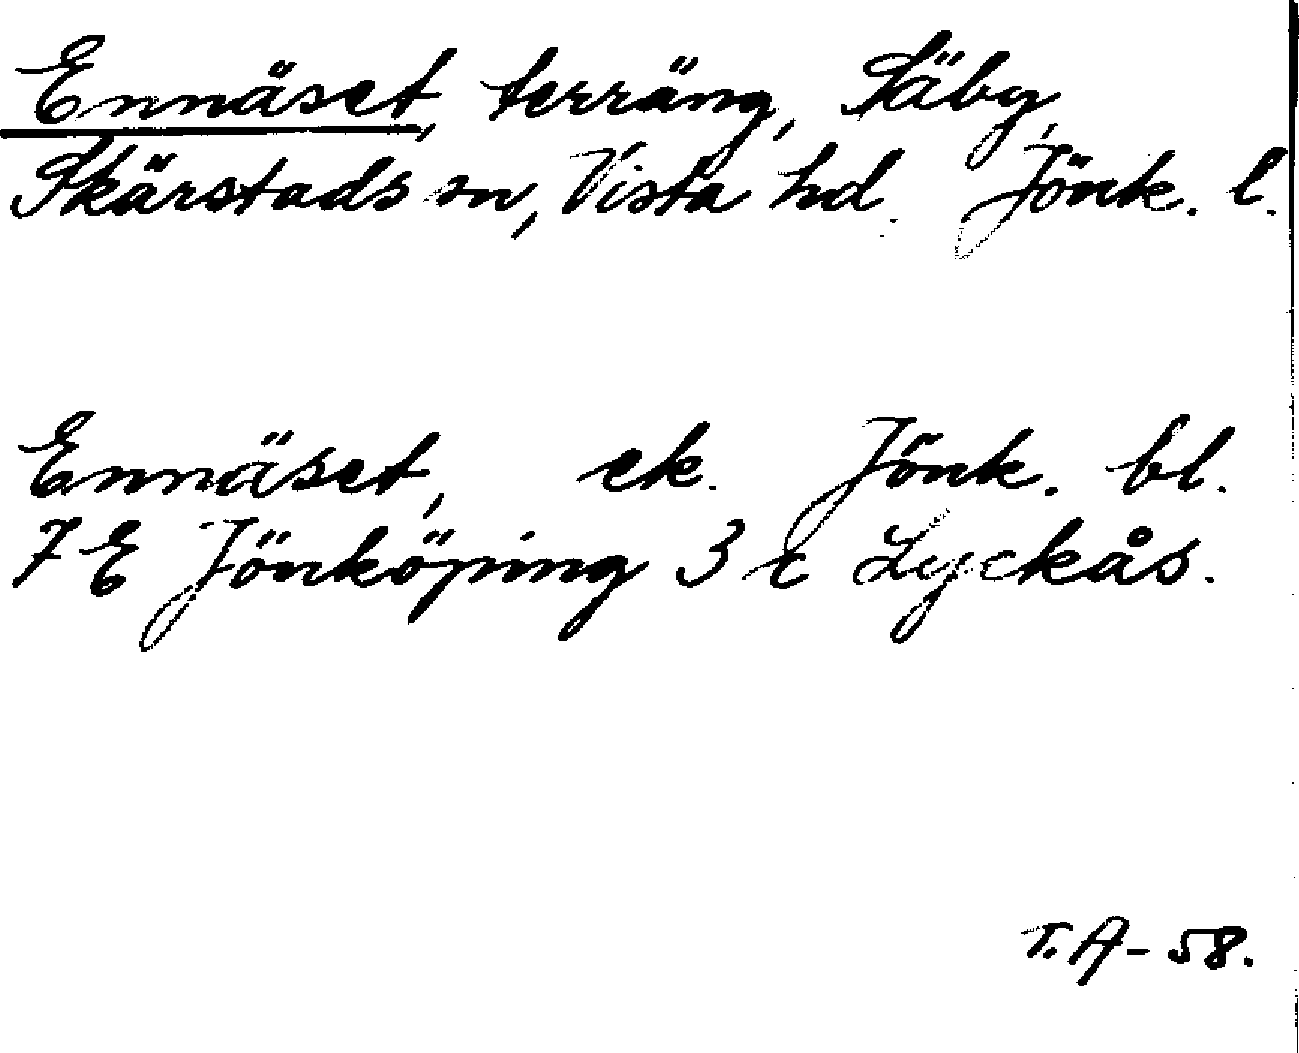 Ennäset, terräng, Säby,
Skärstads sn, Vista hd. Jönk. l.
Ennäset, ek. Jönk. bl.
7 E Jönköping 3 c Lyckås.
T. A - 58.